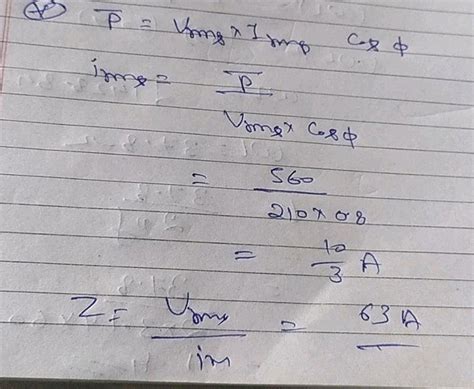 P̅ = Vrms × Irms Cos ϕ
irms = P̅ / Vrms × Cos ϕ
= 560 / 210 × 08
= 10/3 A
Z = Vrms / im = 63 A